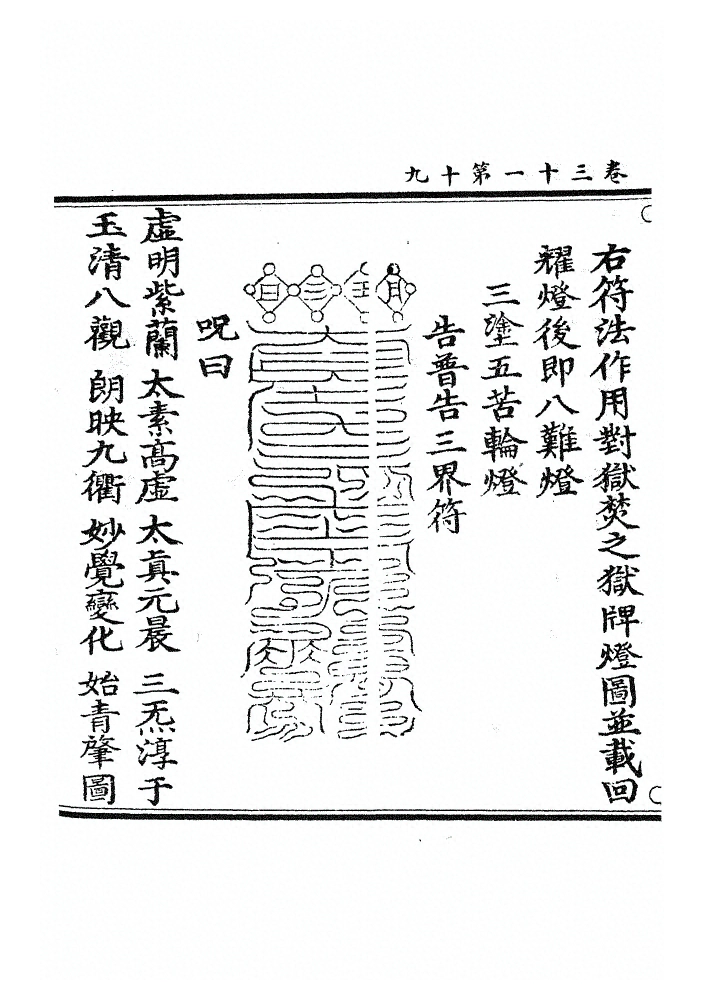 卷三十一第十九
右符法作用對獄焚之獄牌燈圖並載回
耀燈後即八難燈
三塗五苦輪燈
告普告三界符
呪曰
虛明紫蘭 太素高虛 太真元晨 三炁淳于
玉清八觀 朗映九衢 妙覺變化 始青肇圖